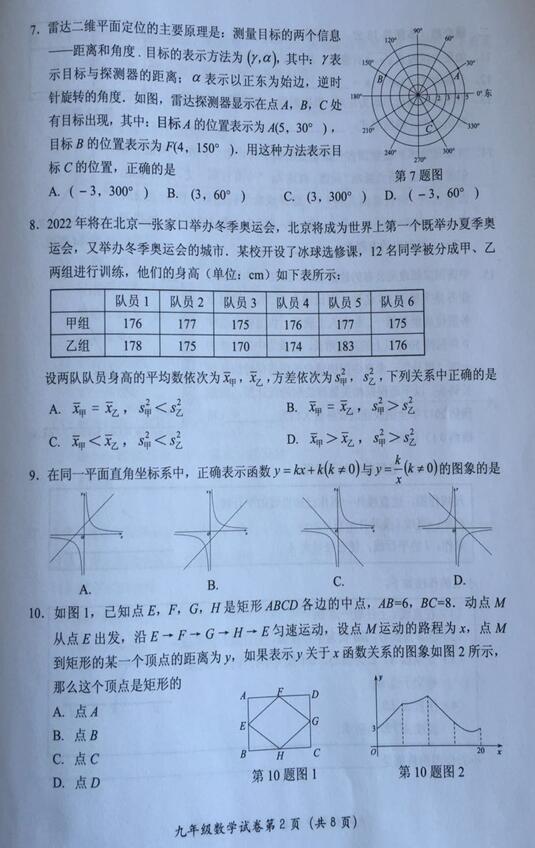 7. 雷达二维平面定位的主要原理是：测量目标的两个信息
——距离和角度．目标的表示方法为(γ,α)，其中：γ表
示目标与探测器的距离；α表示以正东为始边，逆时
针旋转的角度．如图，雷达探测器显示在点A，B，C处
有目标出现，其中：目标A的位置表示为A(5，30°)，
目标B的位置表示为F(4，150°)．用这种方法表示目
标C的位置，正确的是
90°
120°
150°
180°
210°
240°
270°
300°
330°
0°东
A
B
C
1 2 3 4 5
第7题图
A.(－3，300°) B.(3，60°) C.(3，300°) D.(－3，60°)
8. 2022年将在北京—张家口举办冬季奥运会，北京将成为世界上第一个既举办夏季奥
运会，又举办冬季奥运会的城市．某校开设了冰球选修课，12名同学被分成甲、乙
两组进行训练，他们的身高（单位：cm）如下表所示：
队员1 队员2 队员3 队员4 队员5 队员6
甲组 176 177 175 176 177 175
乙组 178 175 170 174 183 176
设两队队员身高的平均数依次为x̄甲，x̄乙，方差依次为s²甲，s²乙，下列关系中正确的是
A. x̄甲＝x̄乙，s²甲＜s²乙 B. x̄甲＝x̄乙，s²甲＞s²乙
C. x̄甲＜x̄乙，s²甲＜s²乙 D. x̄甲＞x̄乙，s²甲＞s²乙
9. 在同一平面直角坐标系中，正确表示函数y=kx+k(k≠0)与y=k/x(k≠0)的图象的是
A. B. C. D.
10. 如图1，已知点E，F，G，H是矩形ABCD各边的中点，AB=6，BC=8．动点M
从点E出发，沿E→F→G→H→E匀速运动，设点M运动的路程为x，点M
到矩形的某一个顶点的距离为y，如果表示y关于x函数关系的图象如图2所示，
那么这个顶点是矩形的
A. 点A
B. 点B
C. 点C
D. 点D
A F D
E G
B H C
第10题图1
y
3
O 20 x
第10题图2
九年级数学试卷第2页（共8页）